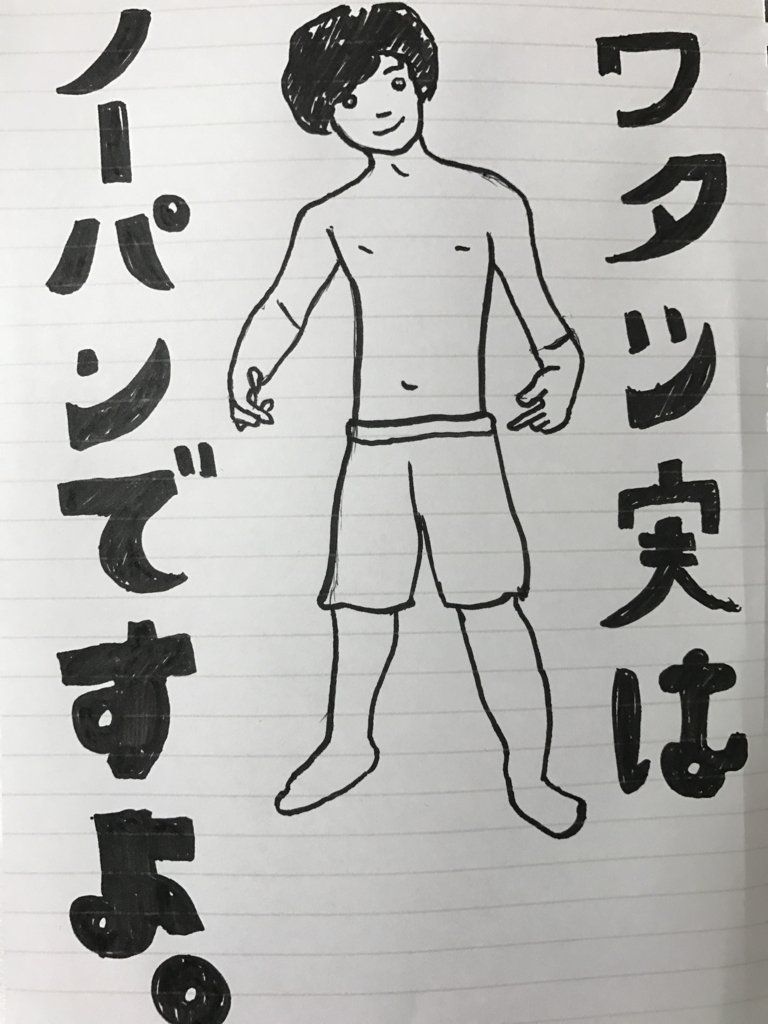 ワタツ実は
ノーパンですよ。